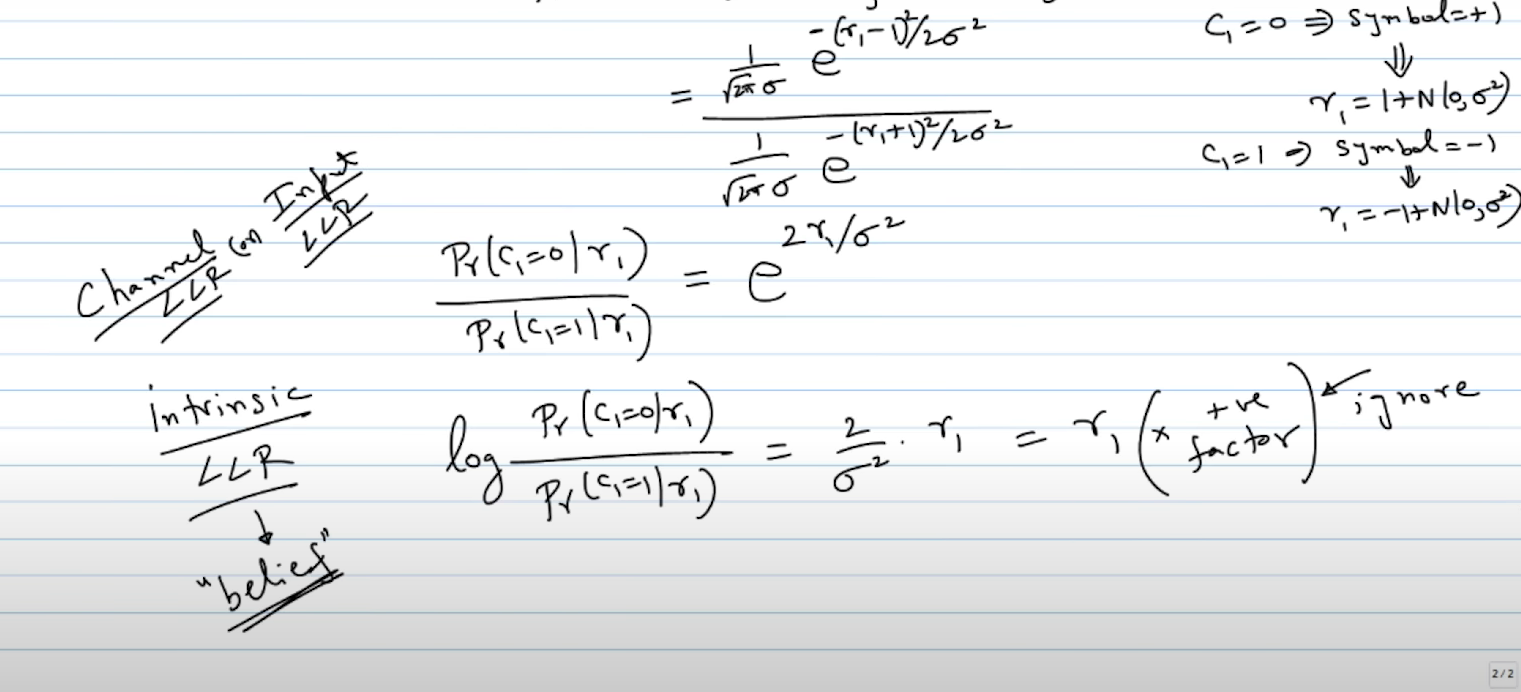 = 1/√2π σ e^-(r₁-1)²/2σ² / 1/√2π σ e^-(r₁+1)²/2σ²
C₁=0 ⇒ symbol=+1
⇓
r₁ = 1+N(0,σ²)
C₁=1 ⇒ symbol=-1
⇓
r₁ = -1+N(0,σ²)
Channel LLR (or) Input LLR
Pr(C₁=0|r₁) / Pr(C₁=1|r₁) = e^2r₁/σ²
intrinsic
LLR
↓
"belief"
log Pr(C₁=0|r₁) / Pr(C₁=1|r₁) = 2/σ² · r₁ = r₁ (× +ve factor) ← ignore
2/2